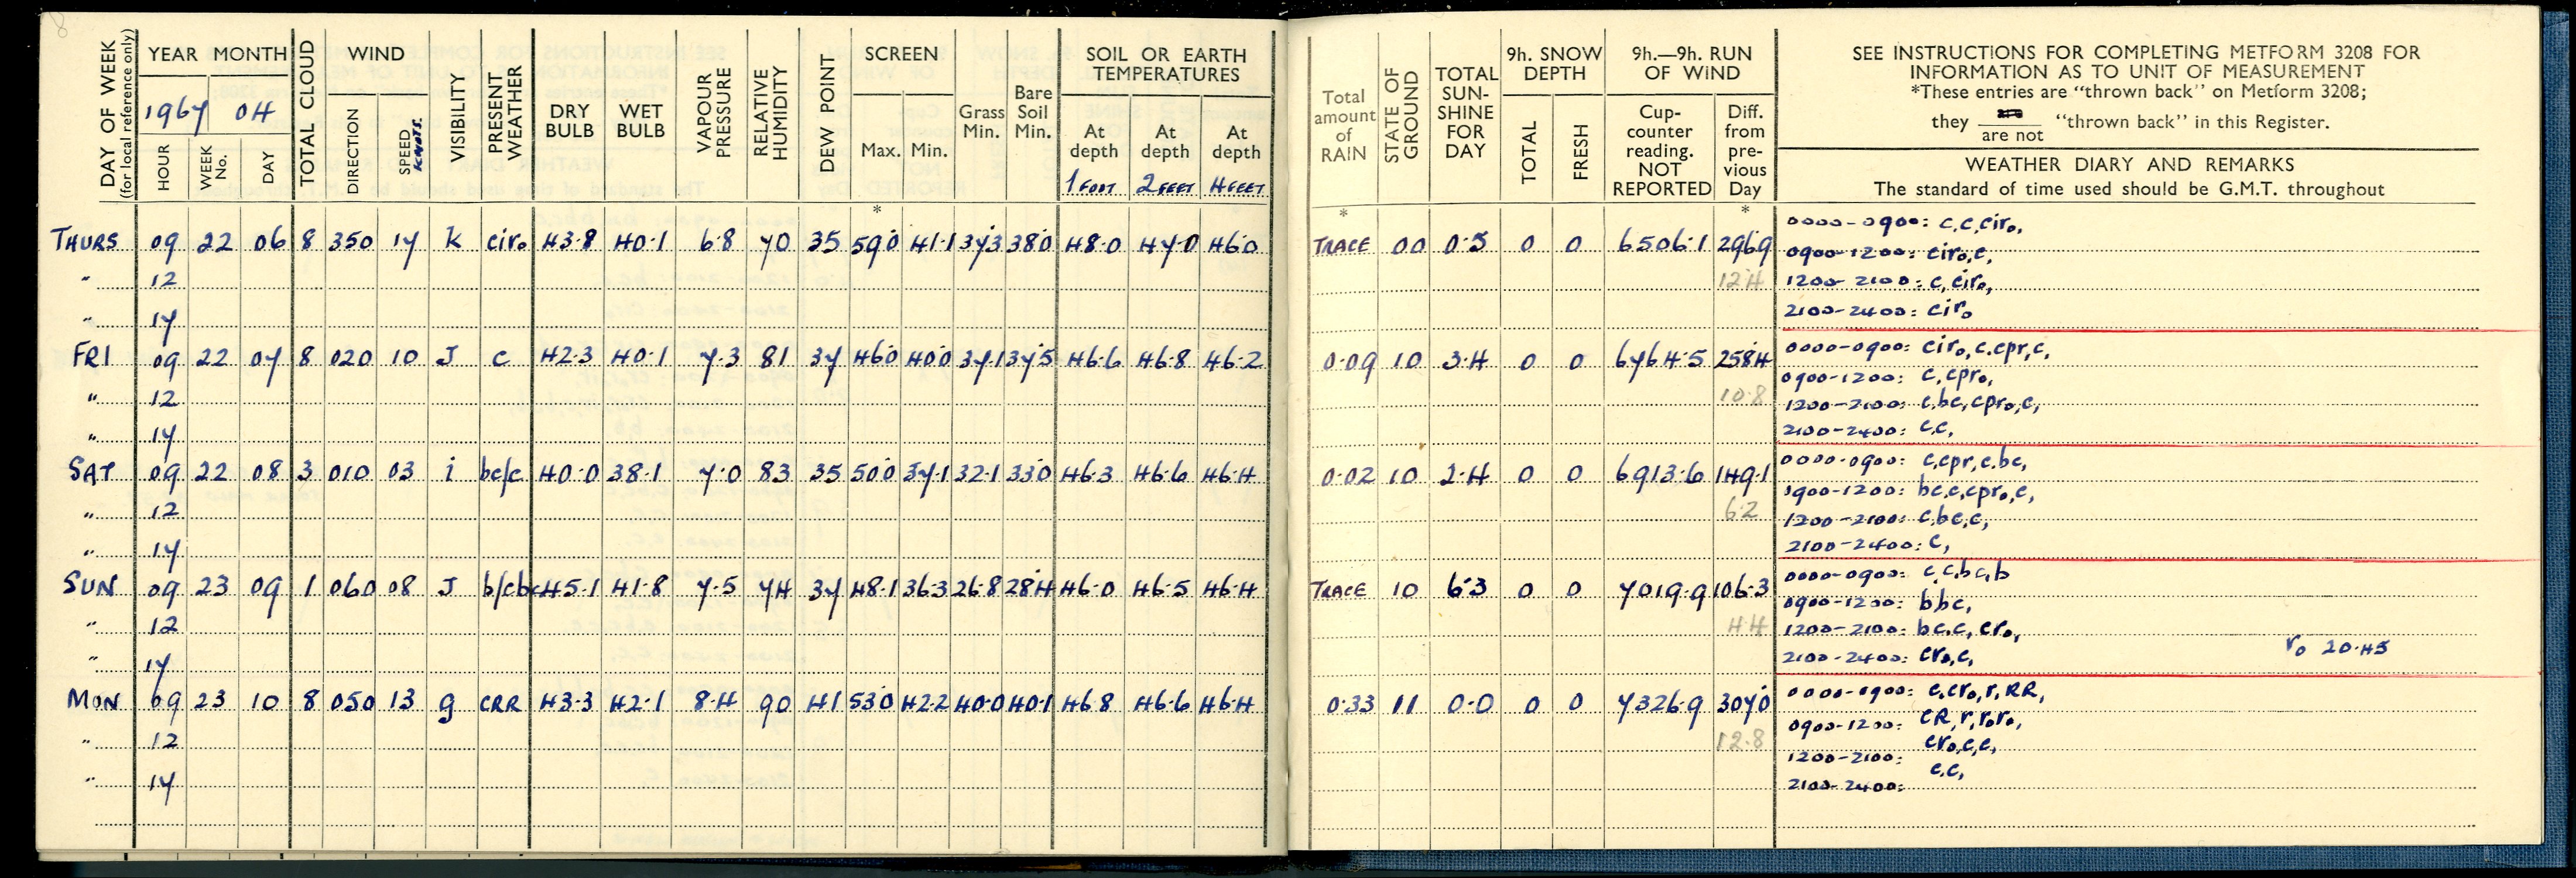 DAY OF WEEK
(for local reference only)
YEAR MONTH
1967 04
HOUR
WEEK No.
DAY
TOTAL CLOUD
WIND
DIRECTION
SPEED KNOTS.
VISIBILITY
PRESENT WEATHER
DRY BULB
WET BULB
VAPOUR PRESSURE
RELATIVE HUMIDITY
DEW POINT
SCREEN
Max. Min.
Grass Min.
Bare Soil Min.
SOIL OR EARTH
TEMPERATURES
At depth 1 FOOT
At depth 2 FEET
At depth 4 FEET
*
THURS 09 22 06 8 350 17 k cir₀ 43.8 40.1 6.8 70 35 59.0 41.1 37.3 38.0 48.0 47.0 46.0
" 12
" 17
FRI 09 22 07 8 020 10 J c 42.3 40.1 7.3 81 37 46.0 40.0 37.1 37.5 46.6 46.8 46.2
" 12
" 17
SAT 09 22 08 3 010 03 i bc/c 40.0 38.1 7.0 83 35 50.0 37.1 32.1 33.0 46.3 46.6 46.4
" 12
" 17
SUN 09 23 09 1 060 08 J b/cbc 45.1 41.8 7.5 74 37 48.1 36.3 26.8 28.4 46.0 46.5 46.4
" 12
" 17
MON 09 23 10 8 050 13 g CRR 43.3 42.1 8.4 90 41 53.0 42.2 40.0 40.1 46.8 46.6 46.4
" 12
" 17
Total amount of RAIN
STATE OF GROUND
TOTAL SUN-SHINE FOR DAY
9h. SNOW DEPTH
TOTAL
FRESH
9h.—9h. RUN OF WIND
Cup-counter reading. NOT REPORTED
Diff. from pre-vious Day
* *
SEE INSTRUCTIONS FOR COMPLETING METFORM 3208 FOR
INFORMATION AS TO UNIT OF MEASUREMENT
*These entries are "thrown back" on Metform 3208;
they are / are not "thrown back" in this Register.
WEATHER DIARY AND REMARKS
The standard of time used should be G.M.T. throughout
TRACE 00 0.5 0 0 6506.1 296.9
12.4
0000-0900: c,c,cir₀,
0900-1200: cir₀,c,
1200-2100: c,cir₀,
2100-2400: cir₀
0.09 10 3.4 0 0 6764.5 258.4
10.8
0000-0900: cir₀,c.cpr,c,
0900-1200: c,cpr₀,
1200-2100: c,bc,cpr₀,c,
2100-2400: c,c,
0.02 10 2.4 0 0 6913.6 149.1
6.2
0000-0900: c,cpr,c.bc,
0900-1200: bc,c,cpr₀,c,
1200-2100: c,bc,c,
2100-2400: c,
TRACE 10 6.3 0 0 7019.9 106.3
4.4
0000-0900: c,c,bc,b
0900-1200: b bc,
1200-2100: bc.c, cr₀,
2100-2400: cr₀,c,
r₀ 20.45
0.33 11 0.0 0 0 7326.9 307.0
12.8
0000-0900: c,cr₀,r,RR,
0900-1200: cR,r,r₀r₀,
1200-2100: cr₀,c,c,
2100-2400: c.c,